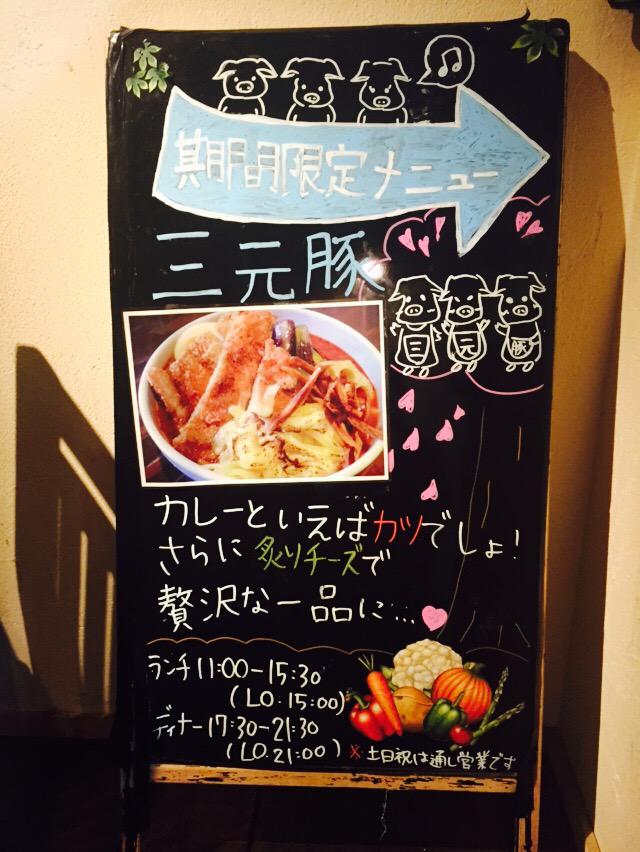 期間限定メニュー
三元豚
三 元 豚
カレーといえばカツでしょ！
さらに炙りチーズで
贅沢な一品に…
ランチ 11:00-15:30
(LO.15:00)
ディナー 17:30-21:30
(LO.21:00)
※土日祝は通し営業です